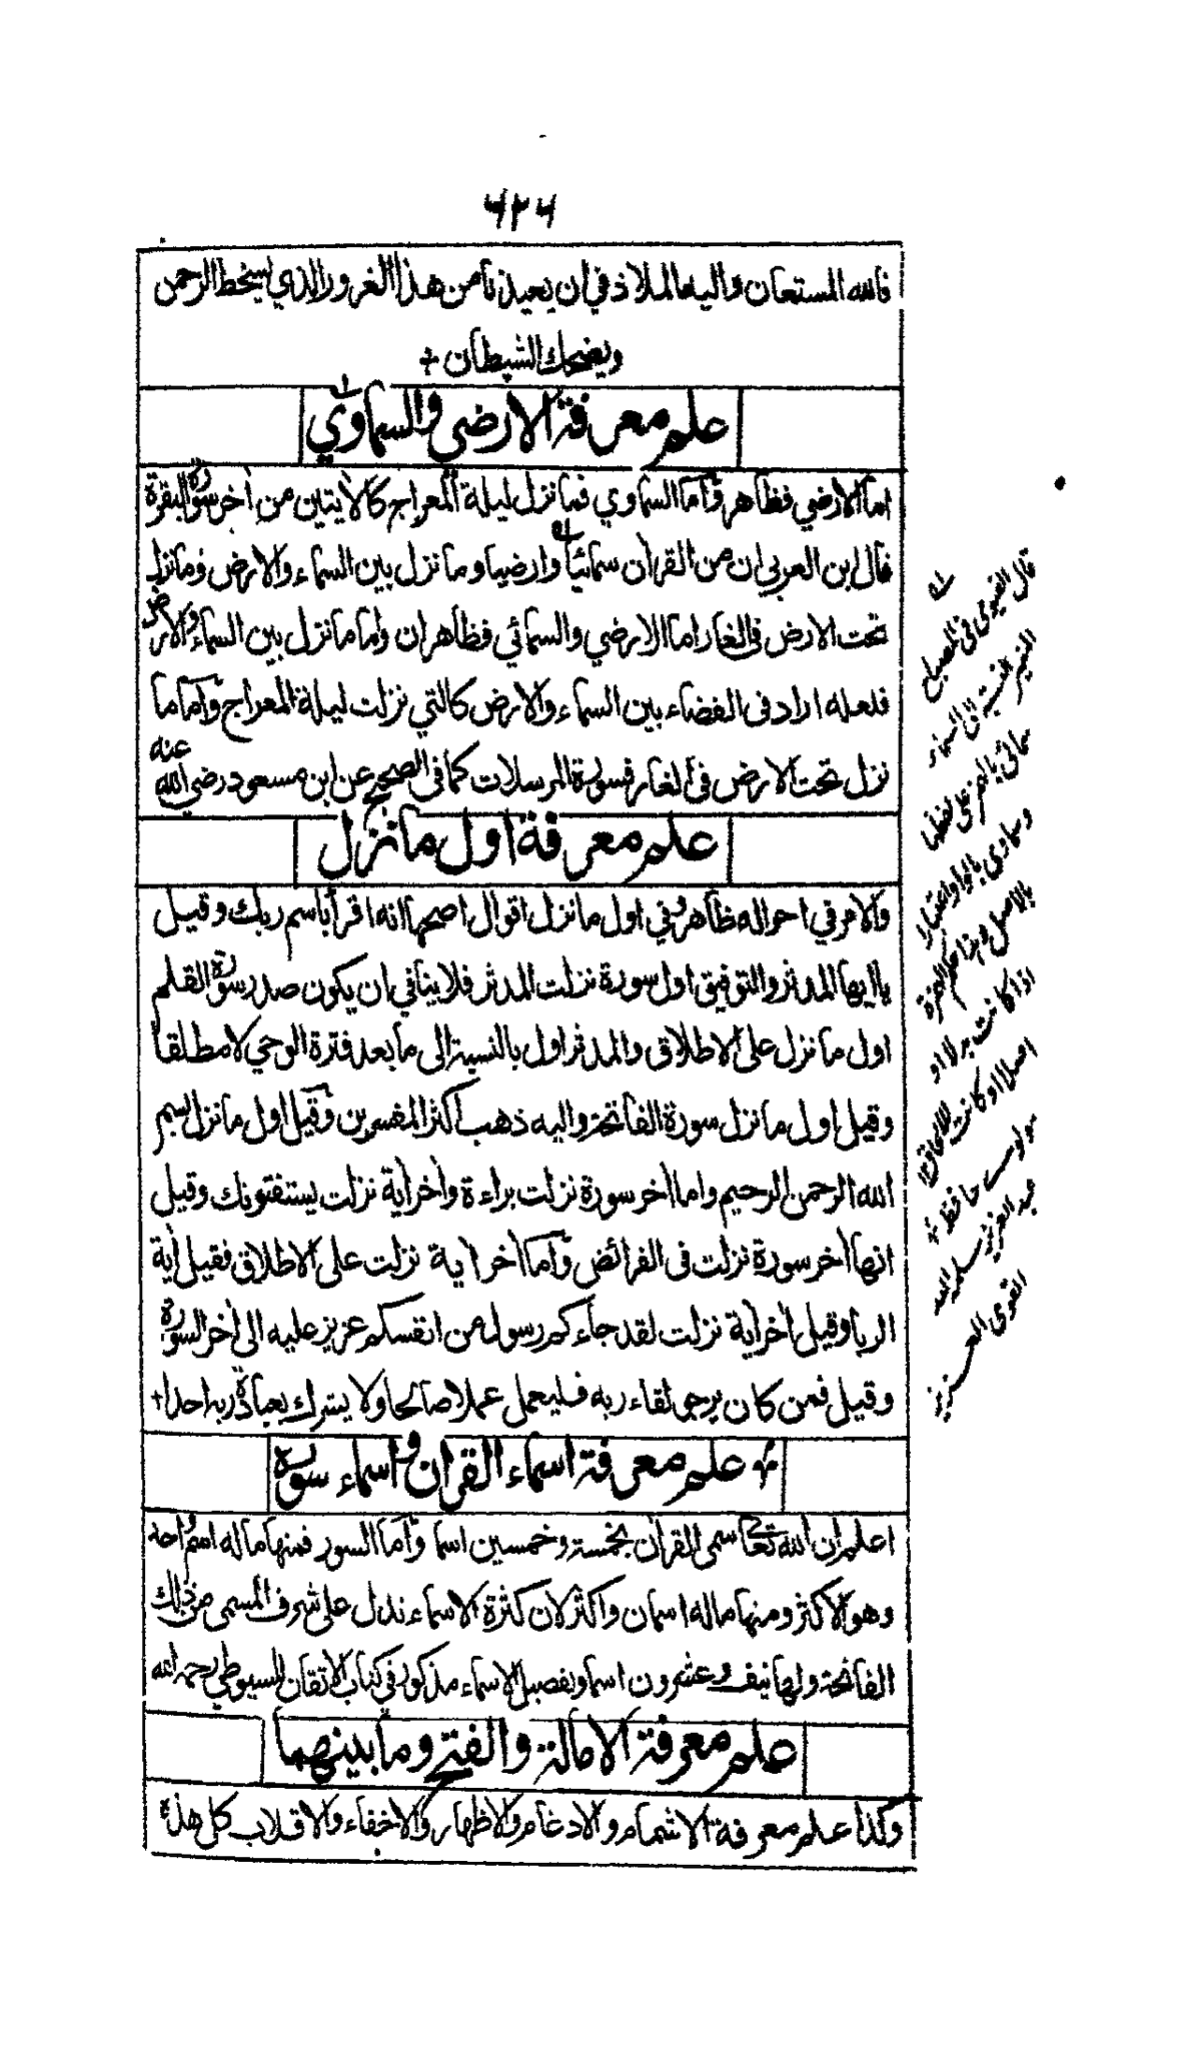 ٦٢٦
فالله المستعان واليه الملاذ في ان يعيذنا من هذا الغرور الذي يسخط الرحمن
ويضحك الشيطان +
علم معرفة الارضي والسماوي
اما الارضي فظاهر واما السماوي فما نزل ليلة المعراج كالأيتين من أخر سورة البقرة
قال ابن العربي ان من القرأن سمائيا وارضيا وما نزل بين السماء والارض وما نزل
تحت الارض في الغار اما الارضي والسمائي فظاهران واما ما نزل بين السماء والارض
فلعله اراد في الفضاء بين السماء والارض كالتي نزلت ليلة المعراج واما ما
نزل تحت الارض في الغار فسورة المرسلات كما في الصحيح عن ابن مسعود رضي الله عنه
علم معرفة اول ما نزل
والامر في احواله ظاهر وفي اول ما نزل اقوال اصحها انه اقرأ باسم ربك وقيل
يا ايها المدثر والتوفيق اول سورة نزلت المدثر فلا ينافي ان يكون صدر سورة القلم
اول ما نزل على الاطلاق والمدثر اول بالنسبة الى ما بعد فترة الوحي لا مطلقا
وقيل اول ما نزل سورة الفاتحة واليه ذهب اكثر المفسرين وقيل اول ما نزل بسم
الله الرحمن الرحيم واما أخر سورة نزلت براءة وأخر أية نزلت يستفتونك وقيل
انها أخر سورة نزلت في الفرائض واما أخر اية نزلت على الاطلاق فقيل أية
الربا وقيل أخر اية نزلت لقد جاءكم رسول من انفسكم عزيز عليه الى أخر السورة
وقيل فمن كان يرجى لقاء ربه فليعمل عملا صالحا ولا يشرك بعبادة ربه احدا +
علم معرفة اسماء القرأن واسماء سوره
اعلم ان الله تعالى سمى القرأن بخمسة وخمسين اسما واما السور فمنها ما له اسم واحد
وهو الاكثر ومنها ما له اسمان واكثر لان كثرة الاسماء تدل على شرف المسمى من ذلك
الفاتحة ولها نيف وعشرون اسما وتفصيل الاسماء مذكور في كتاب الاتقان للسيوطي رحمه الله
علم معرفة الامالة والفتح وما بينهما
وكذا علم معرفة الاشمام والادغام والاظهار والاخفاء والاقلاب كل هذه
قال الفيومي في المصباح
المنير النسبة الى السماء
سمائي بالهمز على لفظها
وسماوي بالواو اعتبارا
بالاصل وهذا حكم الهمزة
اذا كانت بدلا او
اصلا او كانت للالحاق
مولوي حافظ
عبد العزيز سلمه الله
القوي العزيز